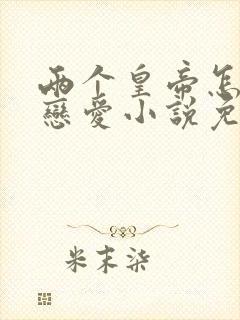 两个皇帝怎
戀愛小說免
米末柒